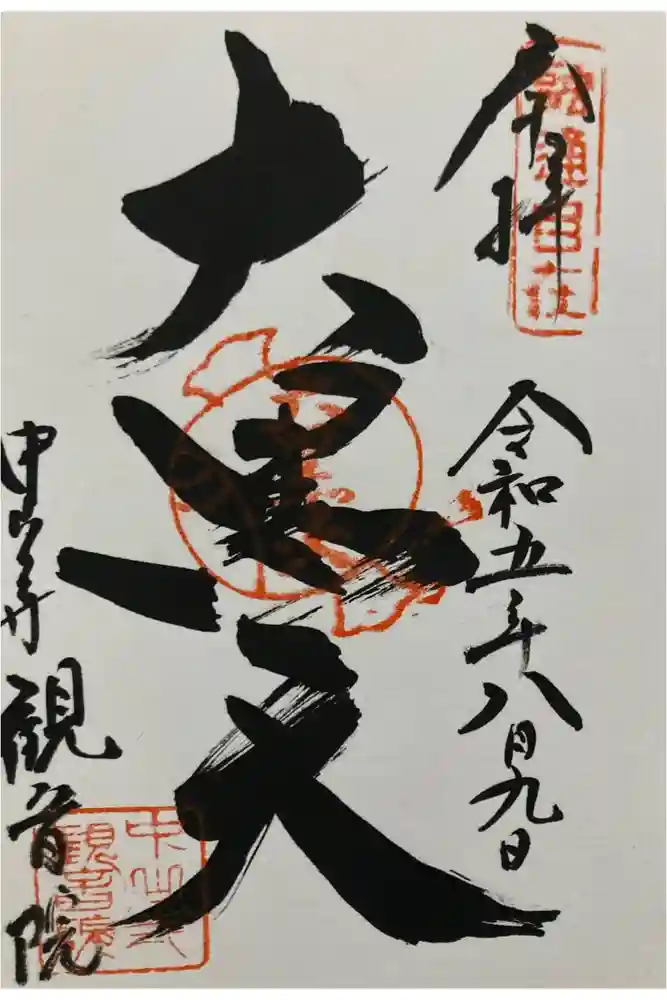 奉拝
融通自在
令和五年八月九日
大黒天
中山寺
観音院
中山寺
観音院